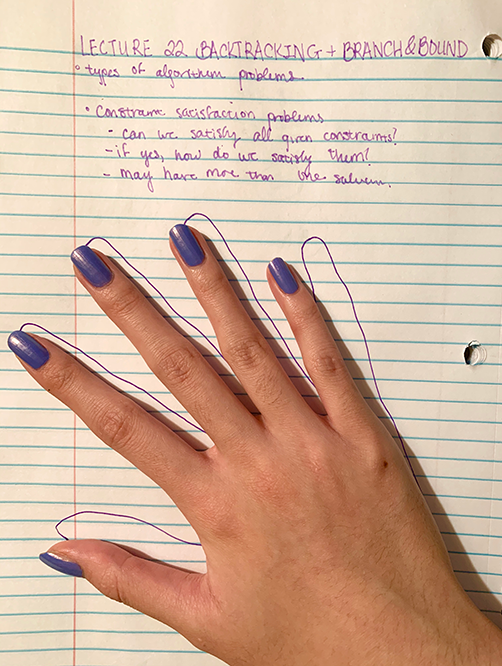 LECTURE 22 BACKTRACKING + BRANCH&BOUND
• types of algorithem problems
• Constraint satisfaction problems
- can we satisfy all given constraints?
- if yes, how do we satisfy them?
- may have more than one